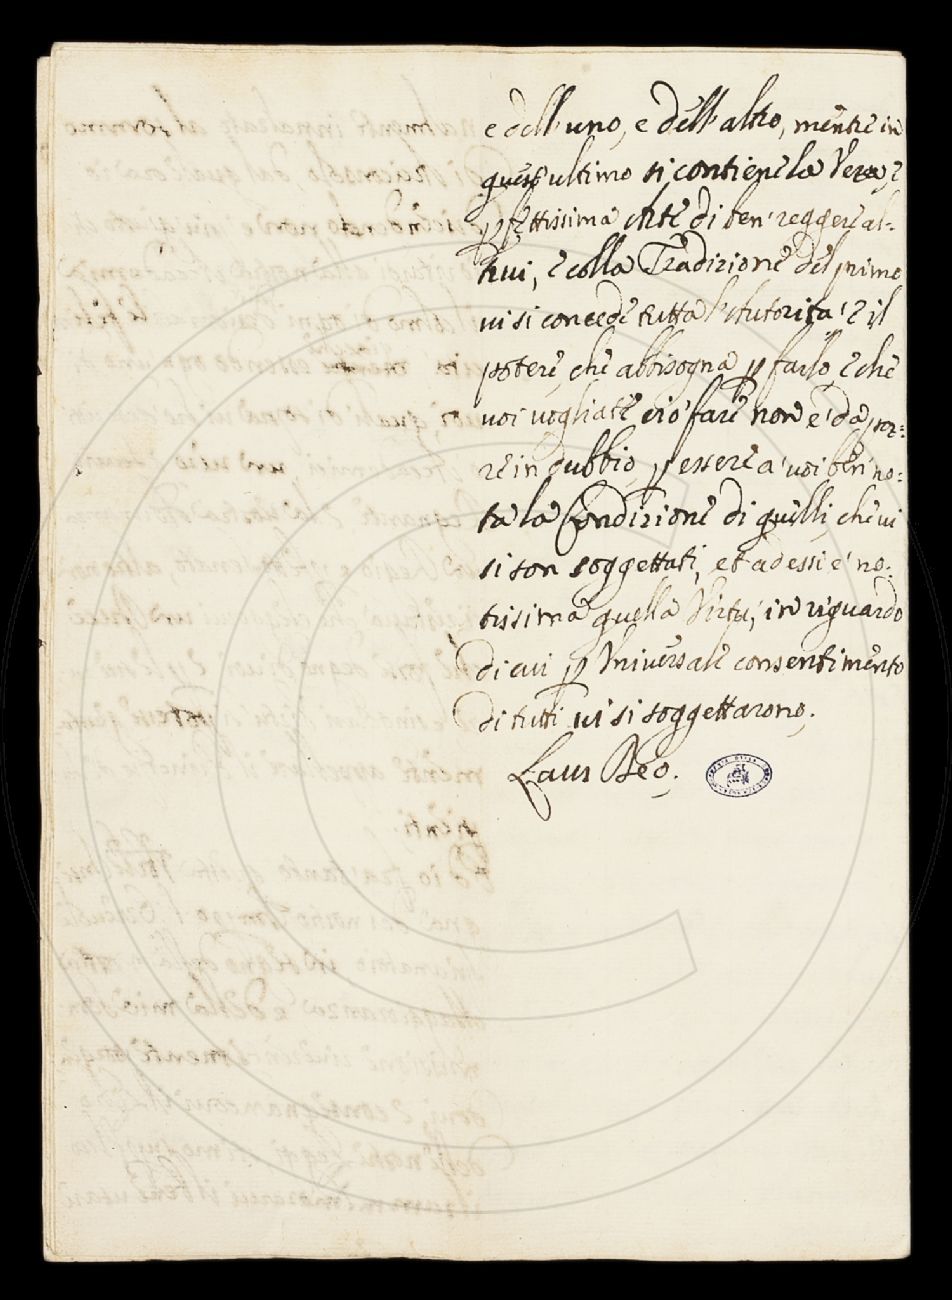 e dell'uno, e dell'altro, mentre in
quest ultimo si contiene la Vera, e
pfettissima Arte di ben' reggere al-
trui, e colla Tradizione del primo
vi si concede tutta l'Autorità e il
potere, che abbisogna p farlo, e che
voi vogliate ciò fare non è da por-
re in dubbio, p essere a' voi ben no-
ta la Condizione di quelli, che vi
si son soggettati, et ad essi è no-
tissima quella Virtù, in riguardo
di cui p Vniversale consentimento
di tutti vi si soggettarono.
Laus Deo.